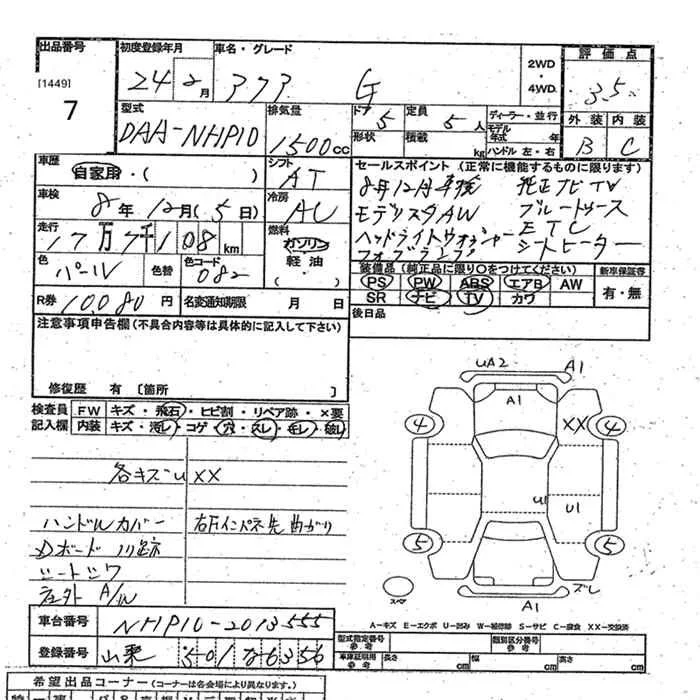 出品番号 初度登録年月 車名・グレード 2WD・4WD 評価点
[1449] 7 24 2月 373 G 3.5
型式 排気量 ドア 定員 ディーラー・並行 外装 内装
DAA-NHP10 1500cc 5 5人 モデル年式 年 B C
形状 積載 kg ハンドル 左・右
車歴 シフト セールスポイント (正常に機能するものに限ります)
自家用・( ) AT 8月12月車検 純正ナビTV
車検 冷房 モデリスタAW ブルートゥース
8年12月(5日) AC ヘッドライトウォッシャー ETC
走行 燃料 フォグランプ シートヒーター
17万7千108km ガソリン 軽油・( )
色 色替 色コード 装備品 (純正品に限り○をつけてください) 新車保証書
パール 082 PS PW ABS エアB AW 有・無
R券 10,080円 名変通知期限 月 日 SR ナビ TV カワ
注意事項申告欄(不具合内容等は具体的に記入して下さい) 後日品
修復歴 有 〔箇所 〕
検査員 FW キズ・飛石・ヒビ割・リペア跡・×要
記入欄 内装 キズ・汚レ・コゲ・穴・スレ・キレ・破レ
各キズU XX
ハンドルカバー 右Fインパネ先曲がり
Dボード
社外 A/W
UA2 A1
A1
4 XX 4
U1 U1
5 5
スペア A1 ズレ
A-キズ E-エクボ U-凹み W-補修跡 S-サビ C-腐食 XX-交換済
車台番号 NHP10-2013555
登録番号 501 な 6356
型式指定番号 参考 類別区分番号 参考
車庫証明用 参考 長さ cm 幅 cm 高さ cm
希望出品コーナー (コーナーは各会場により異なります。)